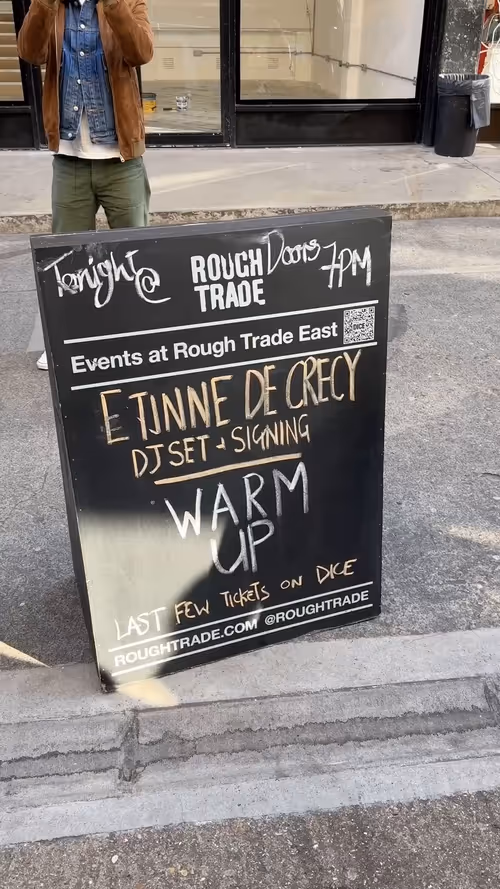 Tonight @ ROUGH TRADE Doors 7PM
Events at Rough Trade East DICE
ETINNE DE CRECY
DJ SET + SIGNING
WARM
UP
LAST FEW TICKETS ON DICE
ROUGHTRADE.COM @ROUGHTRADE